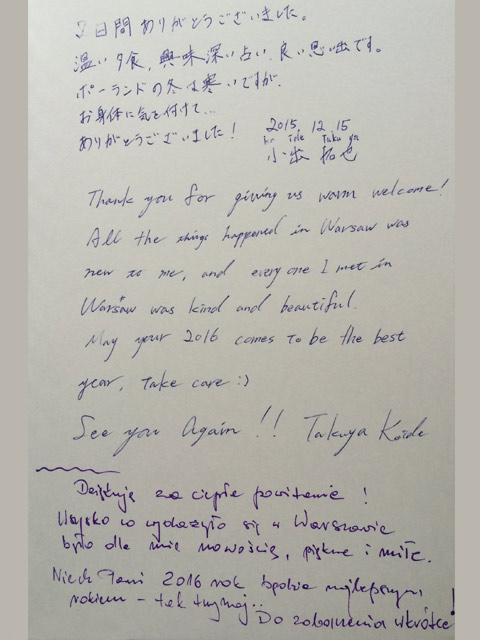 2日間ありがとうございました。
温い夕食、興味深い占い、良い思い出です。
ポーランドの冬は寒いですが、
お身体に気を付けて...
ありがとうございました！
2015. 12. 15
ko ide Taku ya
小出 拓也
Thank you for giving us warm welcome!
All the things happened in Warsaw was
new to me, and every one I met in
Warsaw was kind and beautiful.
May your 2016 comes to be the best
year, take care :)
See you Again !! Takuya Koide
Dziękuję za ciepłe powitanie !
Wszystko co wydarzyło się w Warszawie
było dla mnie nowością, piękne i miłe.
Niech Pani 2016 rok będzie najlepszym
rokiem - tak trzymaj..
Do zobaczenia wkrótce!